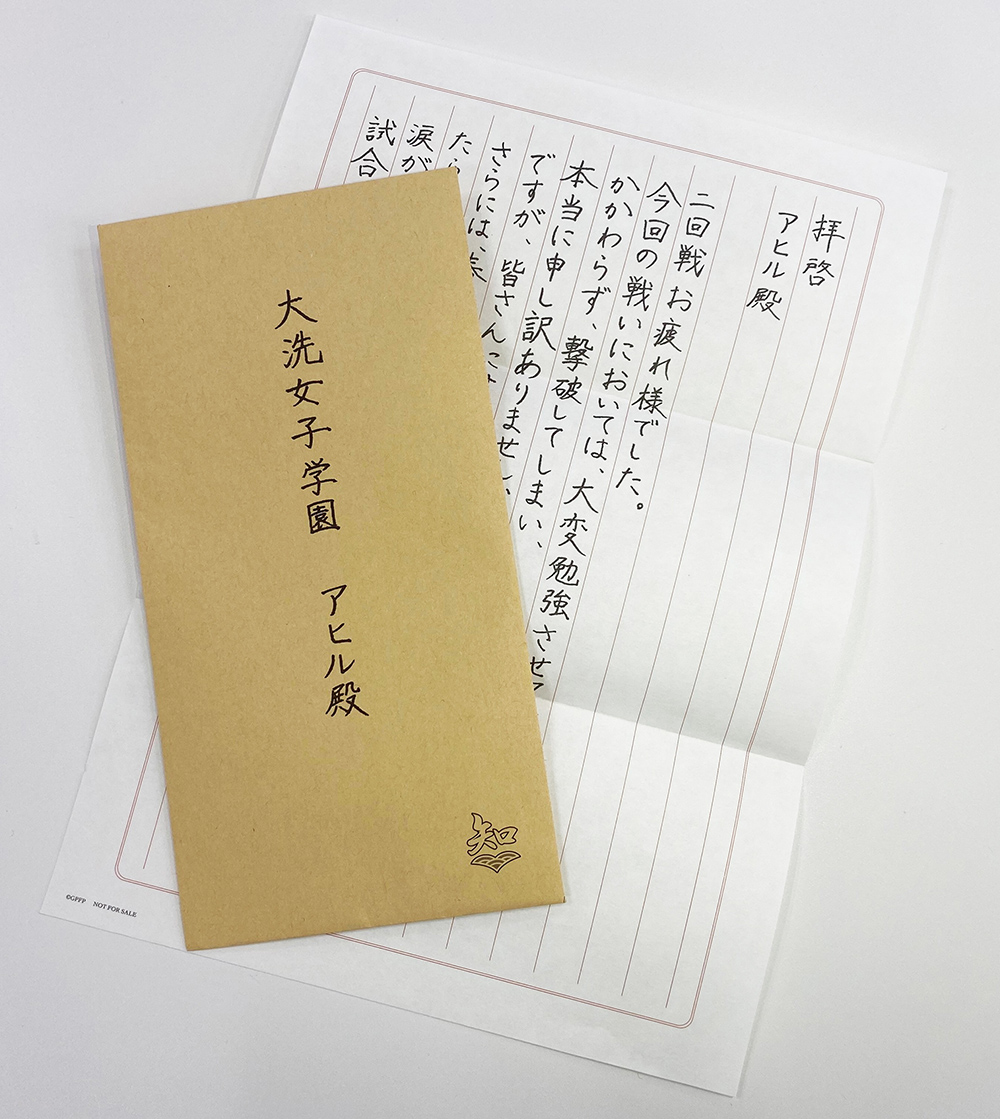 拝啓
アヒル殿
二回戦 お疲れ様でした。
今回の戦いにおいては、大変勉強させて
かかわらず、撃破してしまい、
本当に申し訳ありません
ですが、皆さんに
さらには、
たら
涙が
試合
大洗女子学園 アヒル殿
知
©GPFP NOT FOR SALE